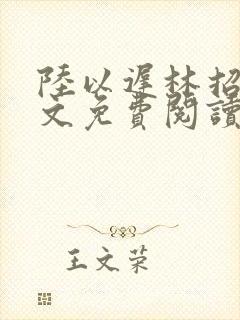 陸以遲林招
文免費閱讀
王文荣